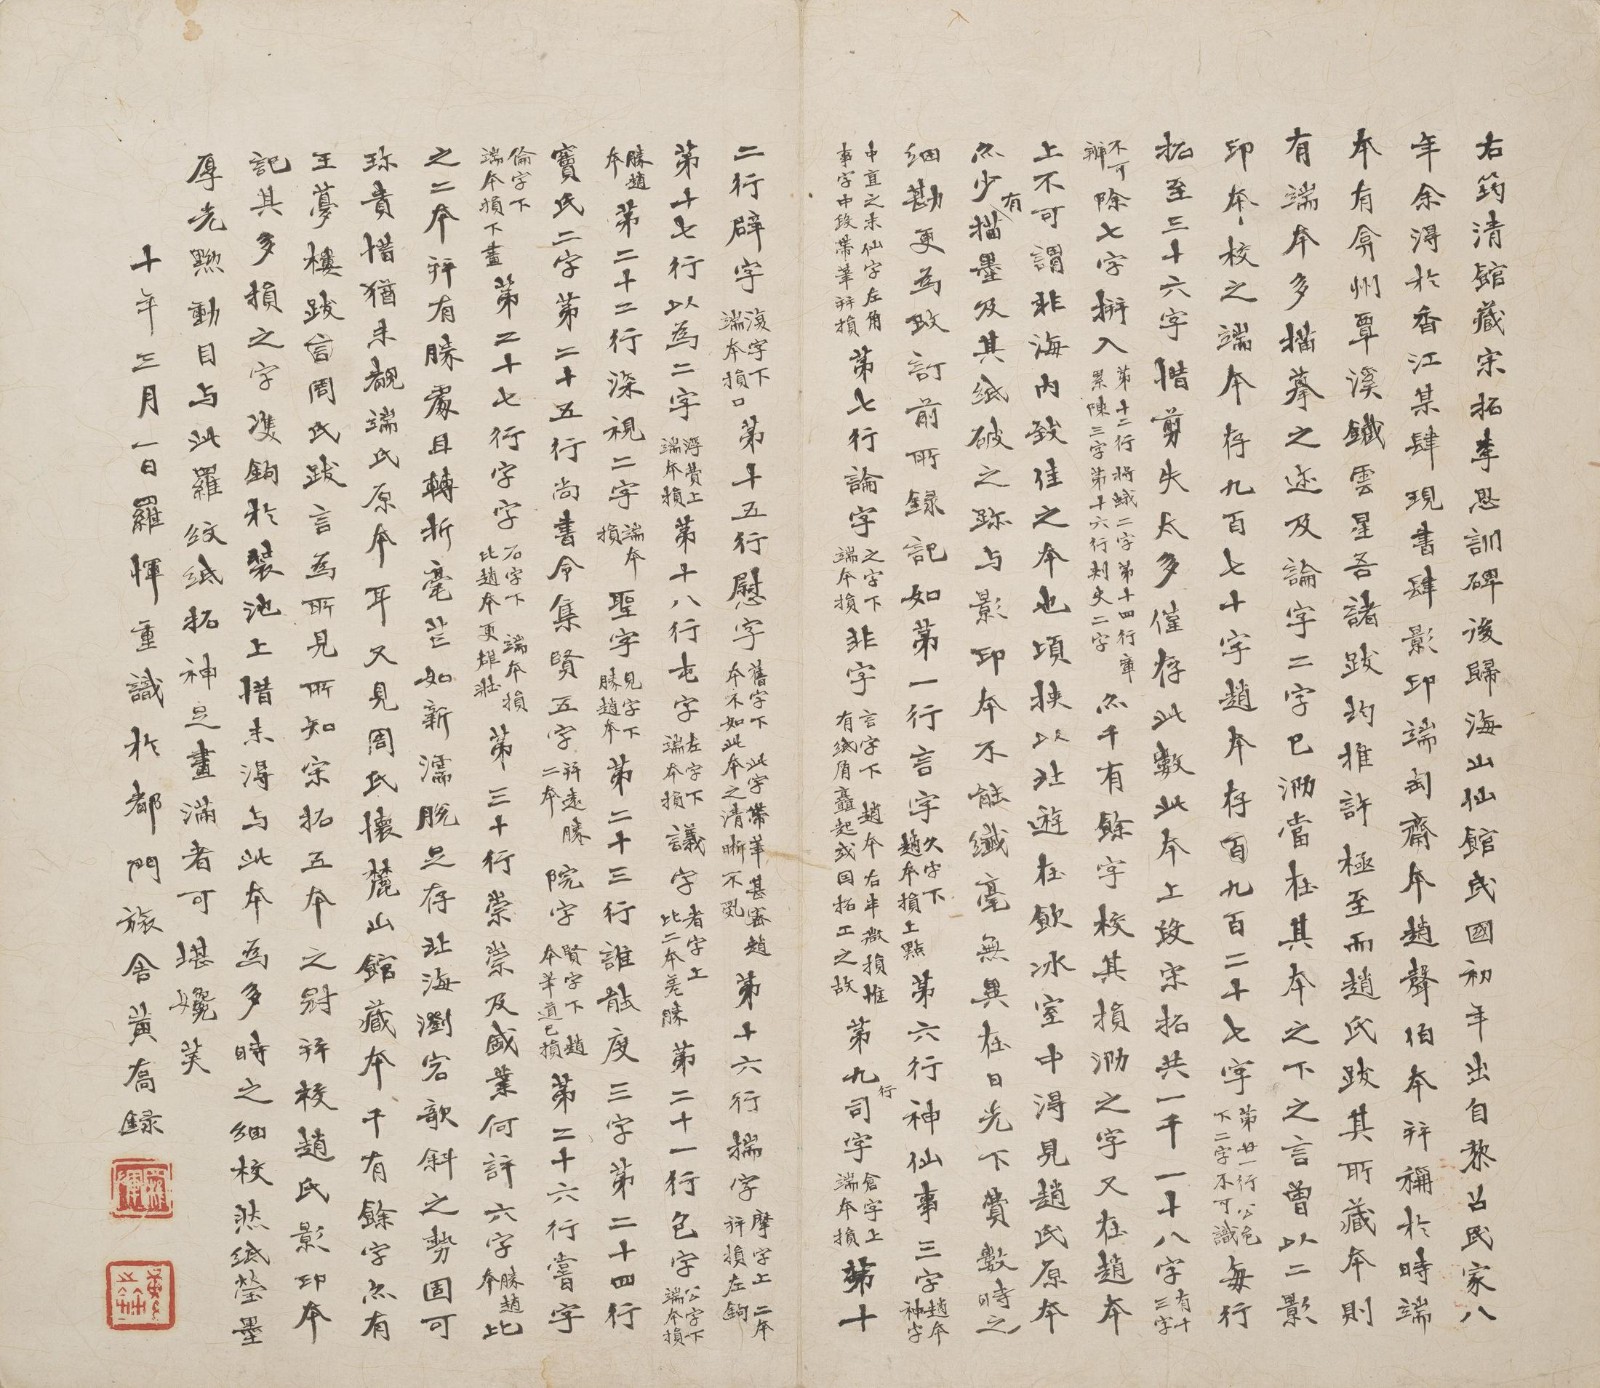 右筠清館藏宋拓李思訓碑後歸海山仙館民國初年出自黎召民家八
年余得於香江某肆現書肆影印端匋齋本趙聲伯本并稱於時端
本有弇州覃溪鐵雲星吾諸跋均推許極至而趙氏跋其所藏本則
有端本多描摹之迹及論字二字已泐當在其本之下之言曾以二影
印本校之端本存九百七十字趙本存百九百二十七字第廿一行公包下二字不可識每行
拓至三十六字惜剪失太多僅存此數此本上致宋拓共一千一十八字有十三字
不可辨除七字拼入第十二行將蛾二字第十四行軍累陳三字第十六行刺史二字亦千有餘字校其損泐之字又在趙本
上不可謂非海內致佳之本也頃挾以北遊在飲冰室中得見趙氏原本
亦少有描墨及其紙破之跡与影印本不能纖毫無異在日光下賞數時之
細勘更為改訂前所録記如第一行言字久字下趙本損上點第六行神仙事三字趙本神字
中直之末仙字左角事字中段帶筆并損第七行論字之字下端本損非字言字下趙本右半微損惟有紙角矗起或因拓工之故第九行司字倉字上端本損第十
二行辟字復字下端本損口第十五行慰字舊字下此字帶筆甚密趙本不如此本之清晰不亂第十六行揣字摩字上二本并損左鉤
第十七行以為二字浮費上端本損第十八行屯字左字下端本損議字者字上比二本差勝第二十一行色字公字下端本損
勝趙本第二十二行深視二字端本損聖字見字下勝趙本第二十三行誰能度三字第二十四行
竇氏二字第二十五行尚書令集賢五字并遠勝二本院字賢字下趙本筆道已損第二十六行嘗字
倫字下端本損下畫第二十七行字字石字下端本損比趙本更雄壯第三十行崇崇及盛業何許六字勝趙本比
之二本并有勝處且轉折毫芒如新濡脫足存北海瀏宕欹斜之勢固可
珍貴惜猶未覩端氏原本耳又見周氏懷麓山館藏本千有餘字亦有
王夢樓跋言周氏跋言為所見所知宋拓五本之冠并校趙氏影印本
記其多損之字雙鉤於裝池上惜未得与此本為多時之細校然紙瑩墨
厚光黝動目与此羅紋紙拓神足畫滿者可堪媲美
十年三月一日羅惲重識於都門旅舍黃裔録
羅惲